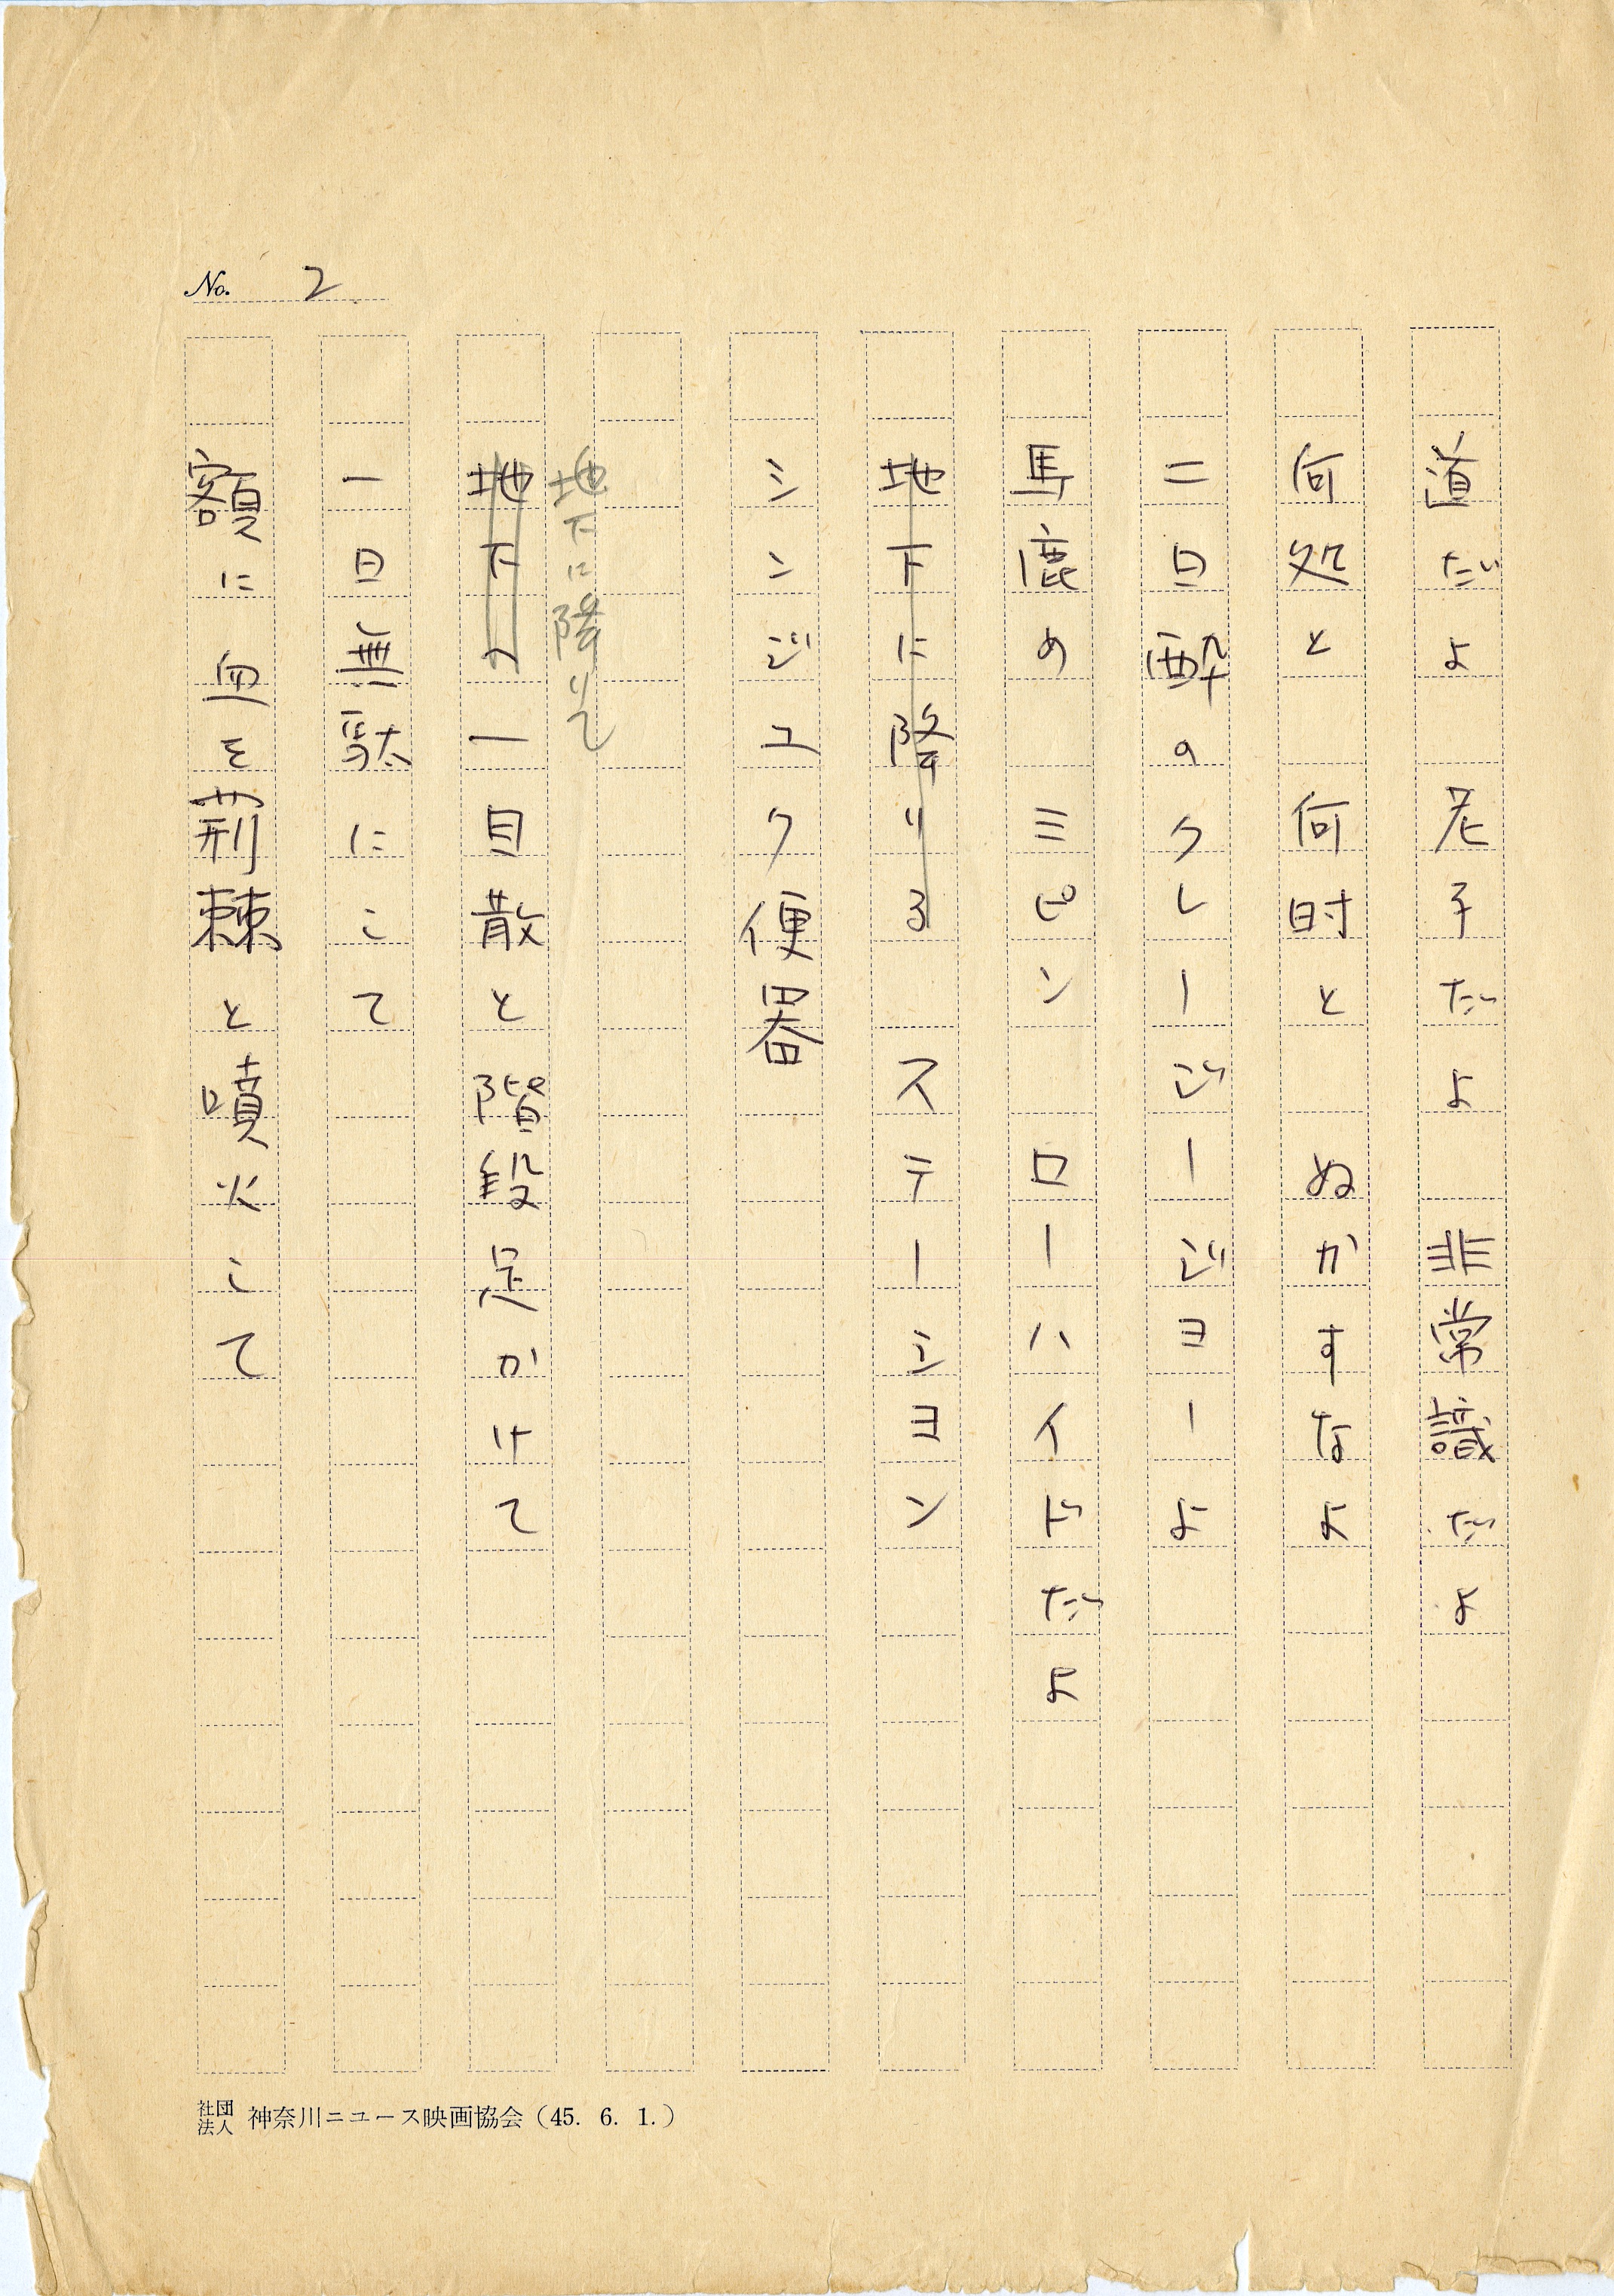 No. 2
道だよ　老子だよ　非常識だよ
何処と　何時と　ぬかすなよ
二日酔のクレージージョーよ
馬鹿め　ミピン　ローハイドだよ
地下に降りる　ステーション
シンジュク便器
地下に降りて
地下へ一目散と階段足かけて
一日無駄にして
額に血を荊棘と噴火して
社団法人 神奈川ニュース映画協会（45. 6. 1.）